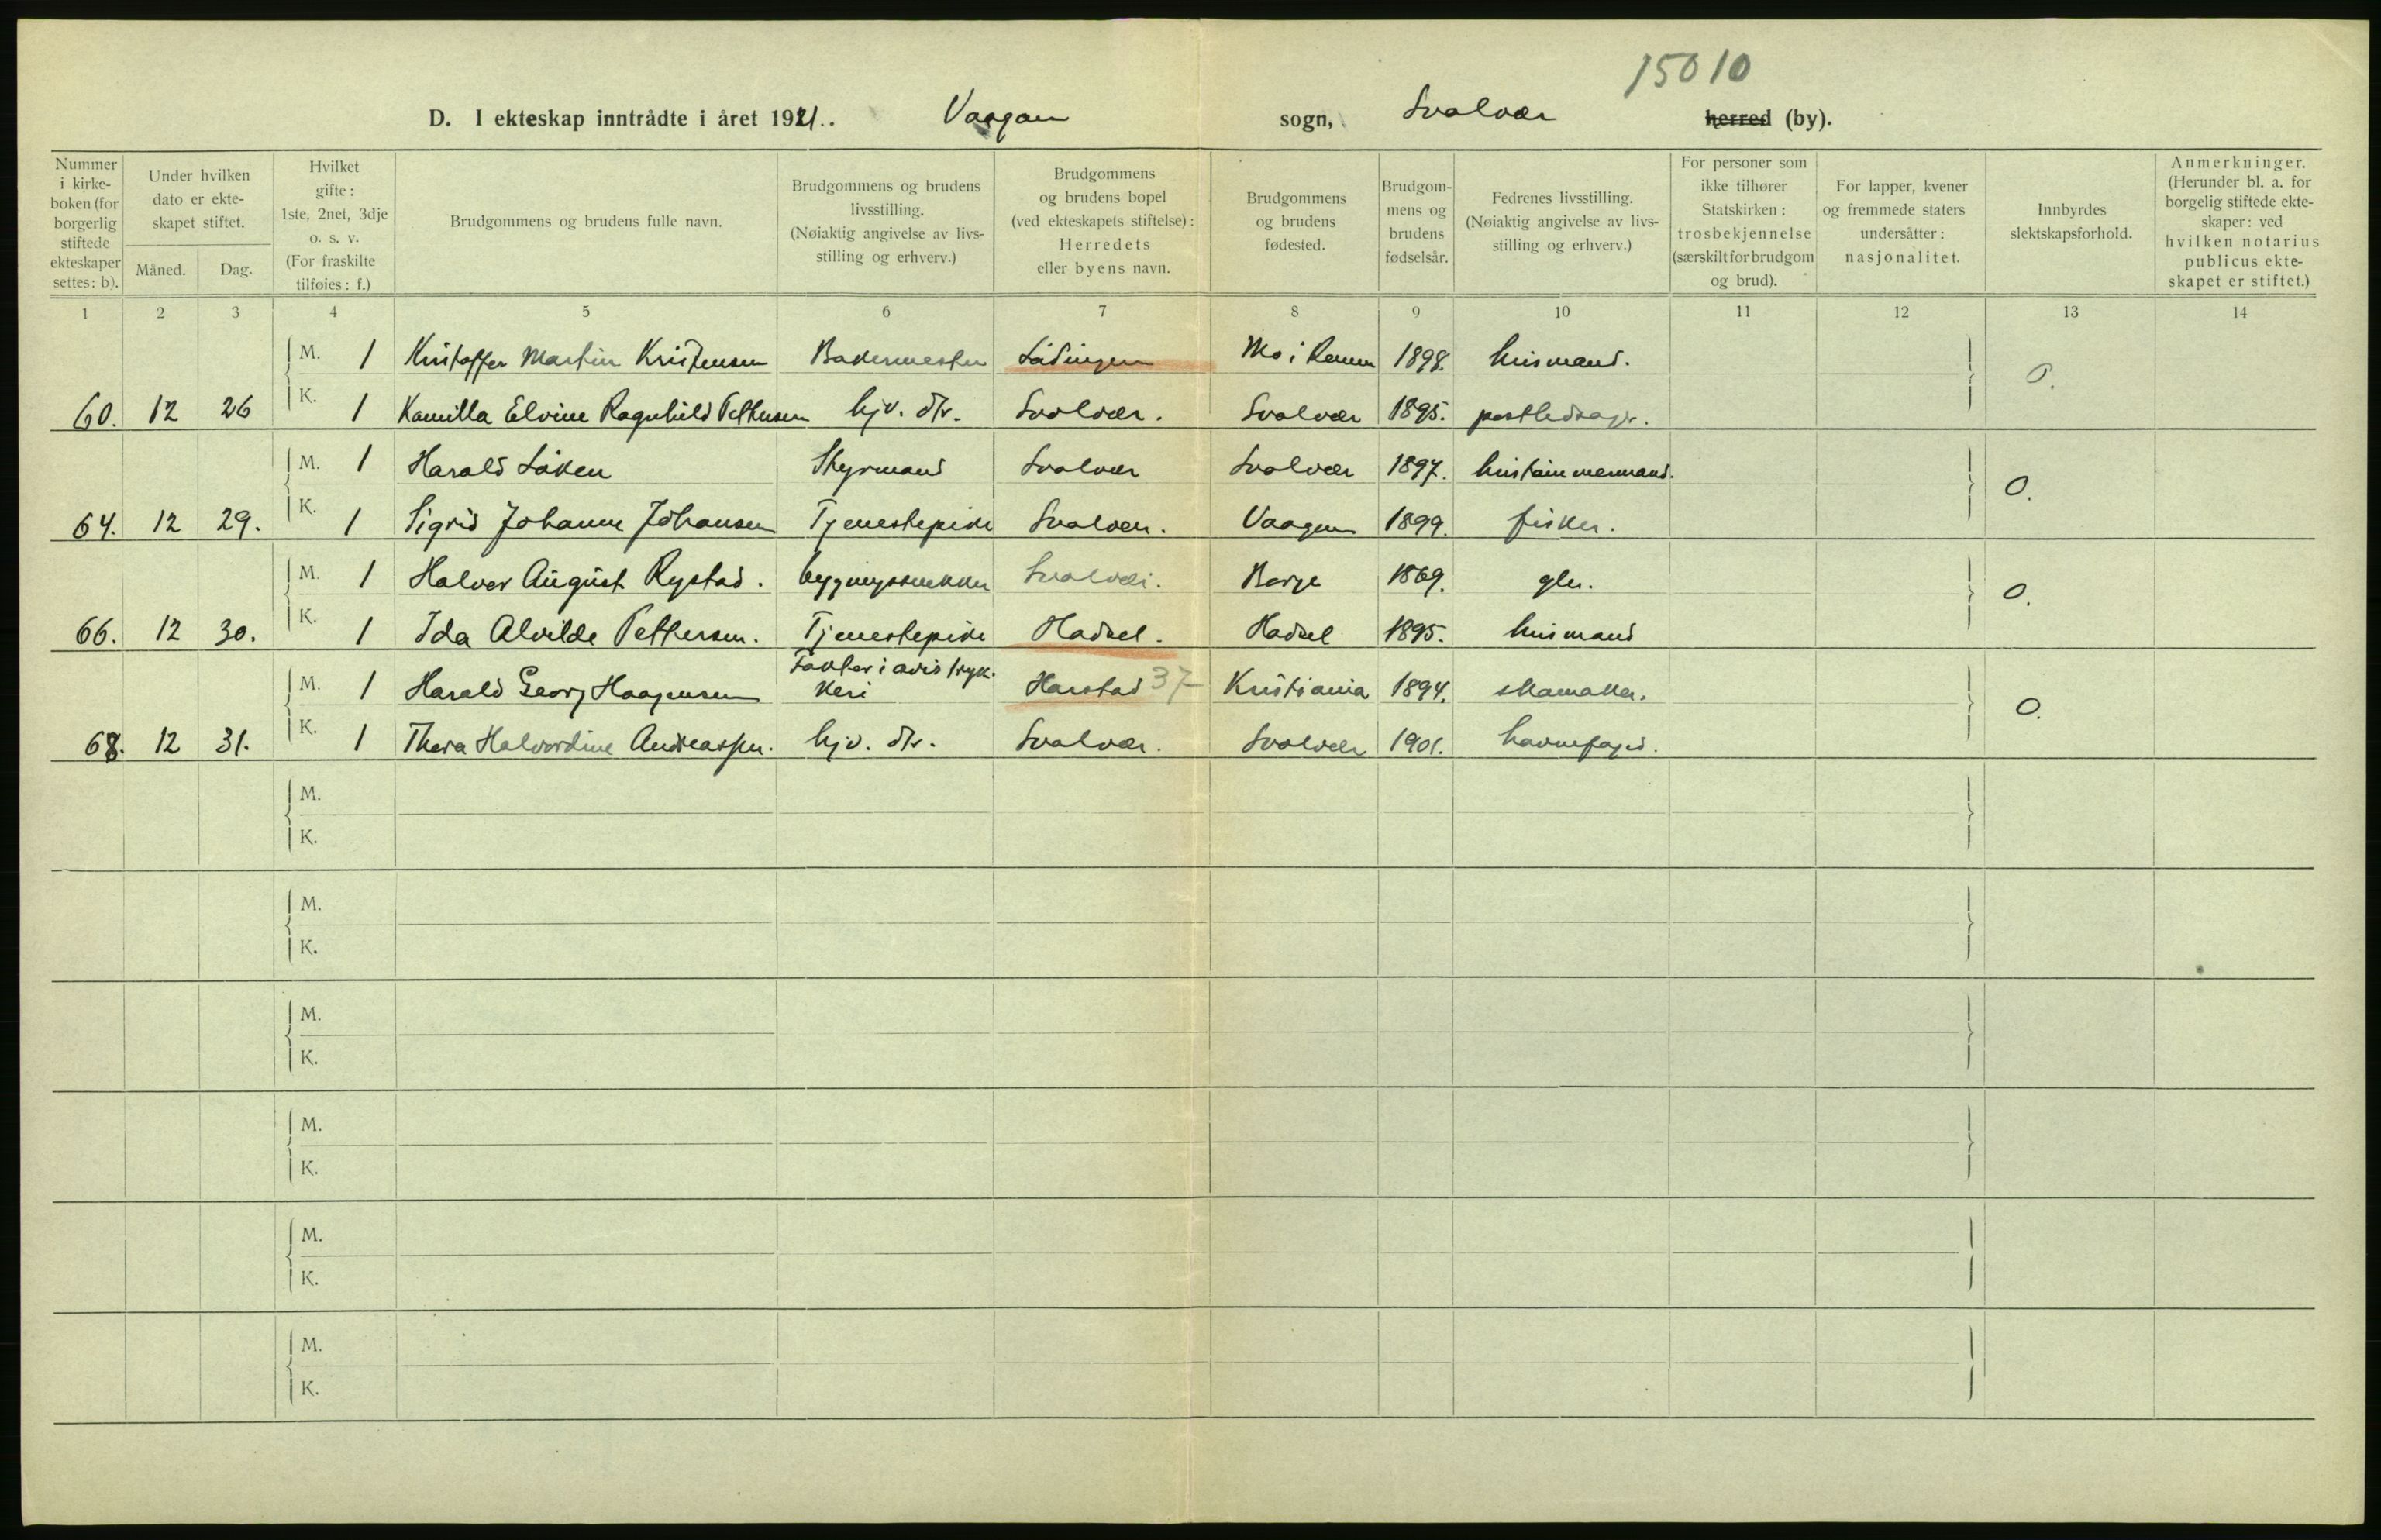 15010
D. I ekteskap inntrådte i året 1921. Vaagan sogn, Svolvær herred (by).
Nummer i kirkeboken (for borgerlig stiftede ekteskaper settes: b).
Under hvilken dato er ekteskapet stiftet.
Måned. Dag.
Hvilket gifte: 1ste, 2net, 3dje o. s. v. (For fraskilte tilføies: f.)
Brudgommens og brudens fulle navn.
Brudgommens og brudens livsstilling. (Nøiaktig angivelse av livsstilling og erhverv.)
Brudgommens og brudens bopel (ved ekteskapets stiftelse): Herredets eller byens navn.
Brudgommens og brudens fødested.
Brudgommens og brudens fødselsår.
Fedrenes livsstilling. (Nøiaktig angivelse av livsstilling og erhverv.)
For personer som ikke tilhører Statskirken: trosbekjennelse (særskilt for brudgom og brud).
For lapper, kvener og fremmede staters undersåtter: nasjonalitet.
Innbyrdes slektskapsforhold.
Anmerkninger. (Herunder bl. a. for borgelig stiftede ekteskaper: ved hvilken notarius publicus ekteskapet er stiftet.)
1 2 3 4 5 6 7 8 9 10 11 12 13 14
M. 1 Kristoffer Martin Kristensen Bakermester Lødingen Mo i Ranen 1898. husmand. 0.
60. 12 26 K. 1 Kamilla Elvine Ragnhild Pettersen hjv. dtr. Svolvær. Svolvær 1895.
M. 1 Harald Løken Styrmand Svolvær Svolvær 1897. hustømmermand. 0.
64. 12 29. K. 1 Sigrid Johanne Johansen Tjenestepike Svolvær. Vaagan 1899. fisker.
M. 1 Halvor August Rystad. bygningssnekker Svolvær. Borge 1869. 0.
66. 12 30. K. 1 Ida Alvilde Pettersen. Tjenestepike Hadsel. Hadsel 1895. husmand
M. 1 Harald Georg Haagensen Faktor i avistrykkeri Harstad 37 Kristiania 1894. skomaker. 0.
68. 12 31. K. 1 Thora Halvordine Andreassen. hjv. dtr. Svolvær. Svolvær 1901. havnefogd.
M.
K.
M.
K.
M.
K.
M.
K.
M.
K.
M.
K.